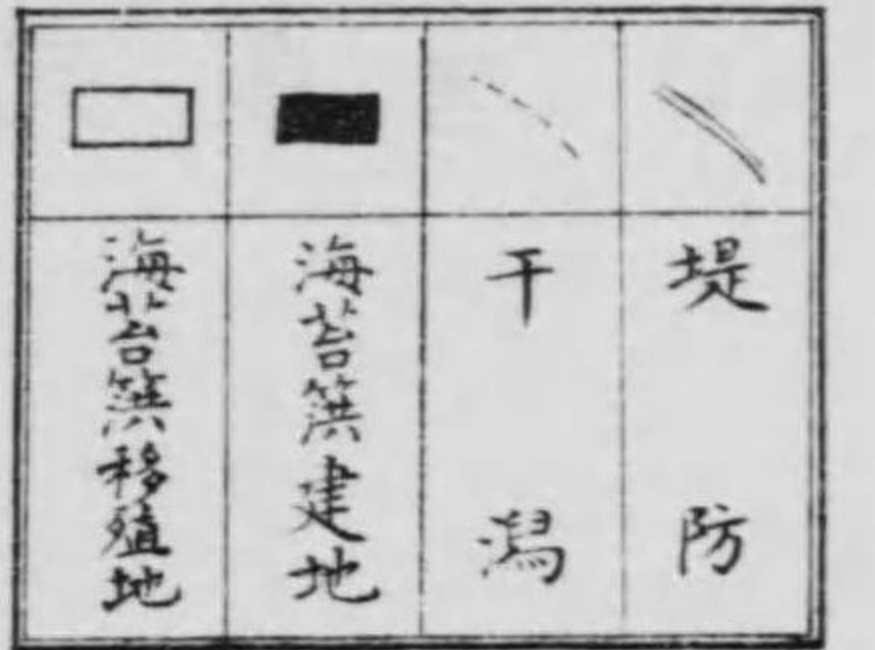 堤防
干潟
海苔篊建地
海苔篊移殖地